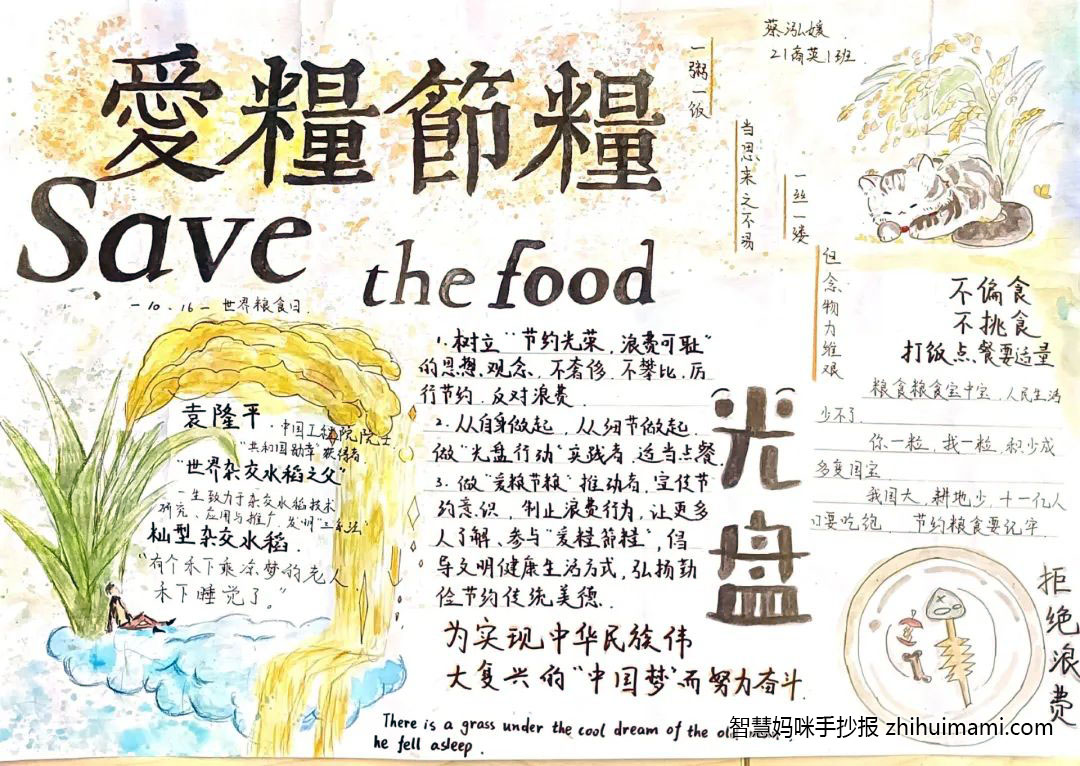 愛糧節糧
Save the food
一10.16一 世界粮食日.
一粥一饭
当思来之不易
一丝一缕
但念物力维艰
蔡泓媛
21商英1班.
袁隆平.中国工程院院士
"共和国勋章"获得者.
"世界杂交水稻之父"
一生致力于杂交水稻技术
研究、应用与推广,发明"三系法"
籼型杂交水稻.
"有个禾下乘凉梦的老人
禾下睡觉了."
1.树立"节约光荣,浪费可耻"
的思想、观念、不奢侈、不攀比,厉
行节约.反对浪费.
2.从自身做起,从细节做起.
做"光盘行动"实践者,适当点餐.
3.做"爱粮节粮"推动者,宣传节
约意识.制止浪费行为,让更多
人了解、参与"爱糧節糧",倡
导文明健康生活方式,弘扬勤
俭节约传统美德.
为实现中华民族伟
大复兴的"中国梦"而努力奋斗.
There is a grass under the cool dream of the old
he fell asleep.
光盘
不偏食
不挑食
打饭点餐要适量
粮食粮食宝中宝,人民生活
少不了.
你一粒,我一粒,积少成
多变国宝
我国大,耕地少,十一亿人
口要吃饱. 节约粮食要记牢.
拒绝浪费
智慧妈咪手抄报 zhihuimami.com